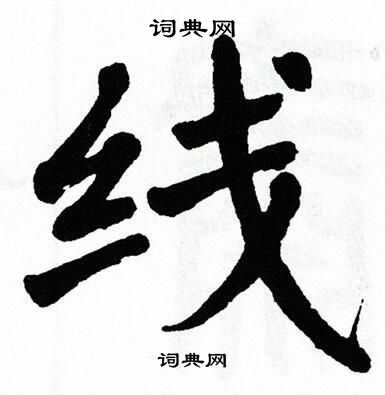 词典网
线
词典网